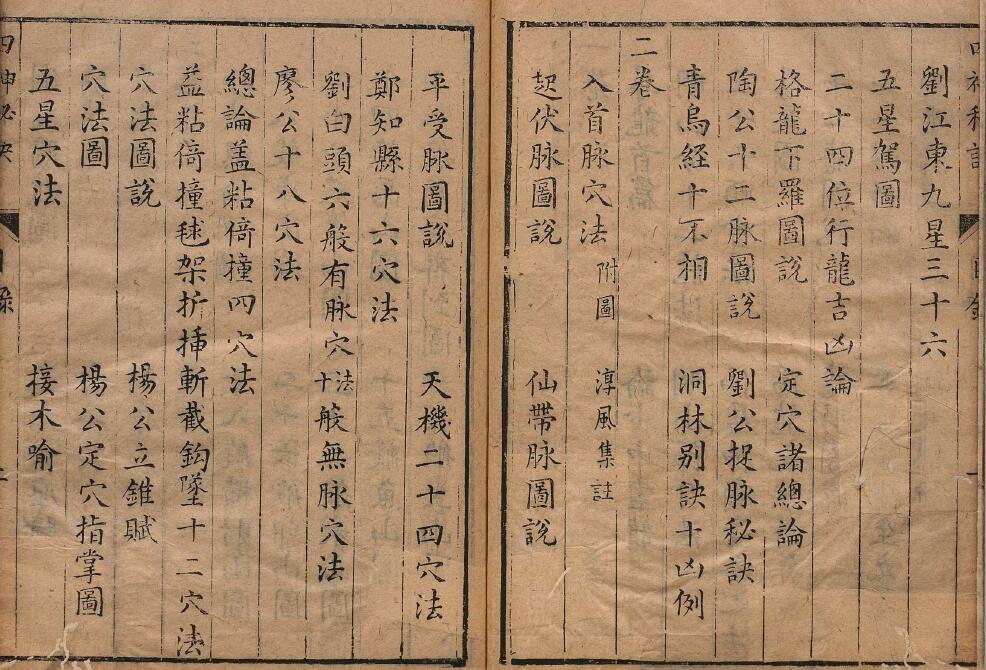 劉江東九星三十六
五星駕圖
二十四位行龍吉凶論
格龍下羅圖說 定穴諸總論
陶公十二脉圖說 劉公捉脉秘訣
青烏經十不相 洞林別訣十凶例
二卷
入首脉穴法 附圖 淳風集註
起伏脉圖說 仙帶脉圖說
平受脉圖說 天機二十四穴法
鄭知縣十六穴法
劉白頭六般有脉穴法 十般無脉穴法
廖公十八穴法
總論葢粘倚撞四穴法
葢粘倚撞毬架折揷斬截鈎墜十二穴法
穴法圖說 楊公立錐賦
穴法圖 楊公定穴指掌圖
五星穴法 接木喻
四神秘訣